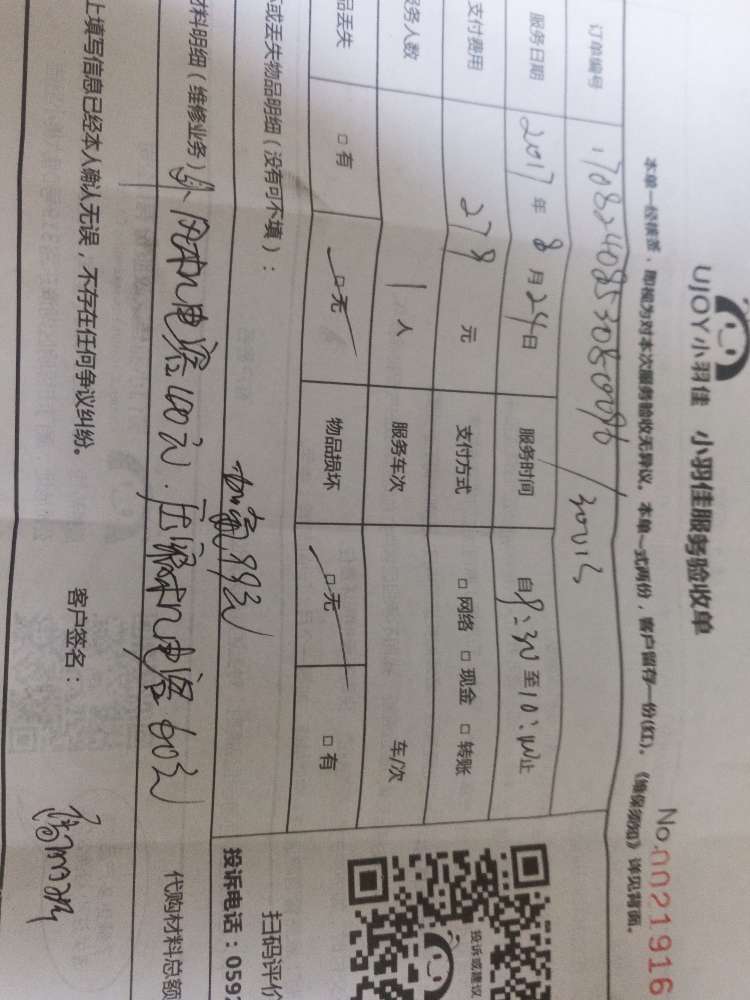 UJOY小羽佳 小羽佳服务验收单
No.0021916
本单一经核签，即视为对本次服务验收无异议。本单一式两份，客户留存一份(红)。《维保须知》详见背面。
订单编号
服务日期 2017年8月24日 服务时间 自9:30至10:10止
支付费用 279元 支付方式 □网络 □现金 □转账
服务人数 1人 服务车次 车/次
品丢失 □有 □无 物品损坏 □无 □有
或丢失物品明细（没有可不填）：
加氟99元
材料明细（维修业务）外风机电容100元．压缩机电容60元
代购材料总额
上填写信息已经本人确认无误，不存在任何争议纠纷。
客户签名：
投诉或建议
扫码评价
投诉电话：059